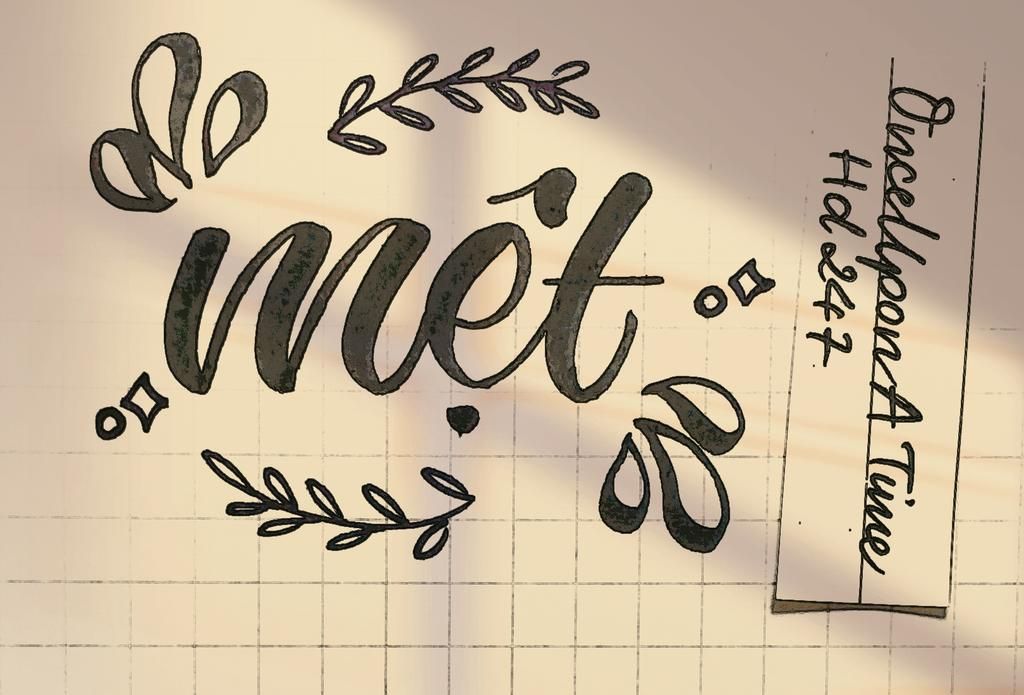 mệt
OnceUpon A Time
Hd 247